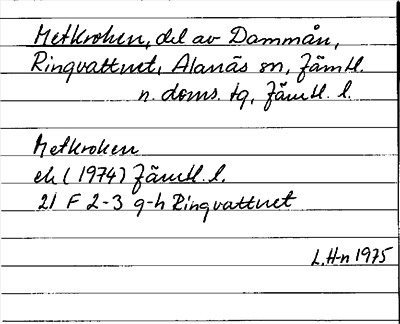 Metkroken, del av Dammån,
Ringvattnet, Alanäs sn, Jämtl.
n. doms. tg, Jämtl. l.
Metkroken
ek (1974) Jämtl. l.
21 F 2-3 g-h Ringvattnet
L.H-n 1975